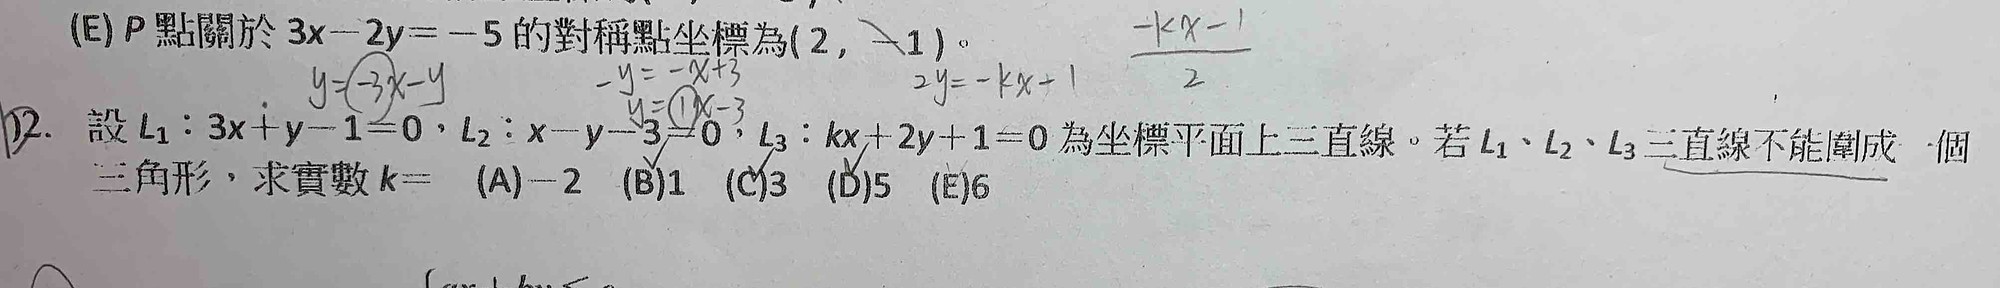 (E) P 點關於 3x－2y＝－5 的對稱點坐標為(2, －1)。
-kx-1
2
y=-3x-y
-y=-x+3
2y=-kx+1
y=1x-3
12. 設 L₁：3x＋y－1＝0，L₂：x－y－3＝0，L₃：kx＋2y＋1＝0 為坐標平面上三直線。若 L₁、L₂、L₃ 三直線不能圍成一個
三角形，求實數 k＝ (A)－2 (B)1 (C)3 (D)5 (E)6